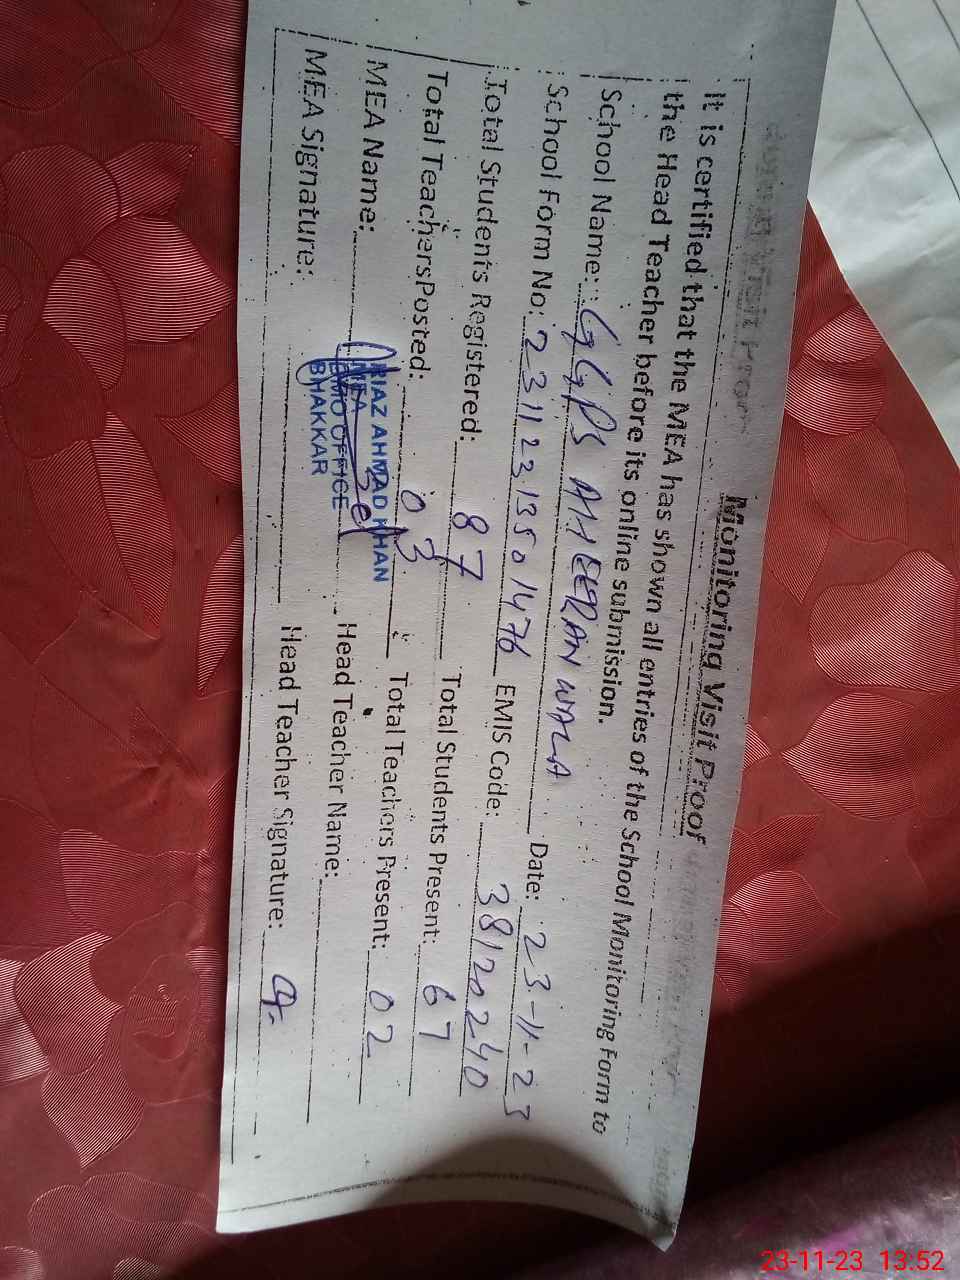 Monitoring Visit Proof
It is certified that the MEA has shown all entries of the School Monitoring Form to
the Head Teacher before its online submission.
School Name: GGPS AHEERAN WALA Date: 23-11-23
School Form No: 23112313501476 EMIS Code: 38120240
Total Students Registered: 87 Total Students Present: 67
Total Teachers Posted: 03 Total Teachers Present: 02
MEA Name: RIAZ AHMAD KHAN Head Teacher Name:
MEA
DMO OFFICE
BHAKKAR
MEA Signature: Head Teacher Signature:
23-11-23 13:52